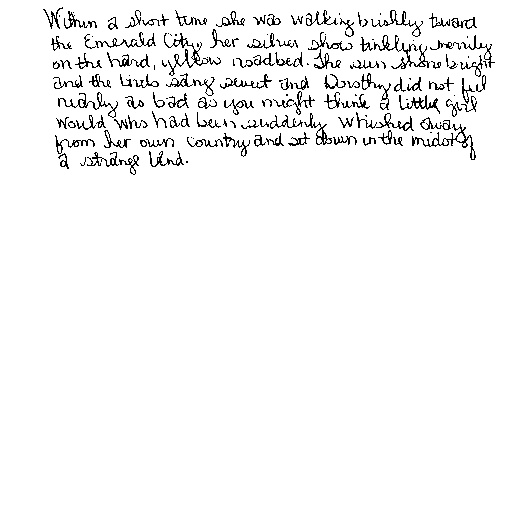 Within a short time she was walking briskly toward
the Emerald City, her silver shoes tinkling merrily
on the hard, yellow roadbed. The sun shone bright
and the birds sang sweet and Dorothy did not feel
nearly as bad as you might think a little girl
would who had been suddenly whisked away
from her own country and set down in the midst of
a strange land.